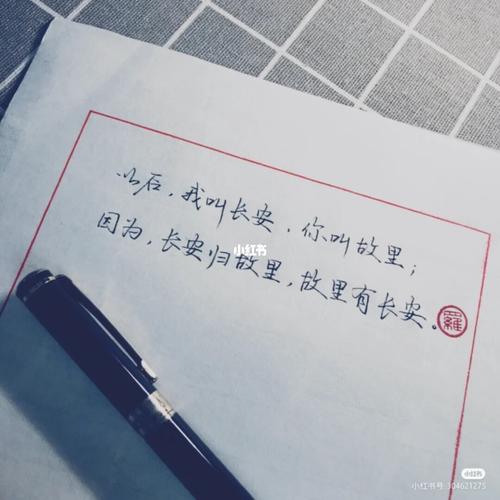 以后，我叫长安，你叫故里；
因为，长安归故里，故里有长安。
羅
小红书
小红书
小红书号 304621275